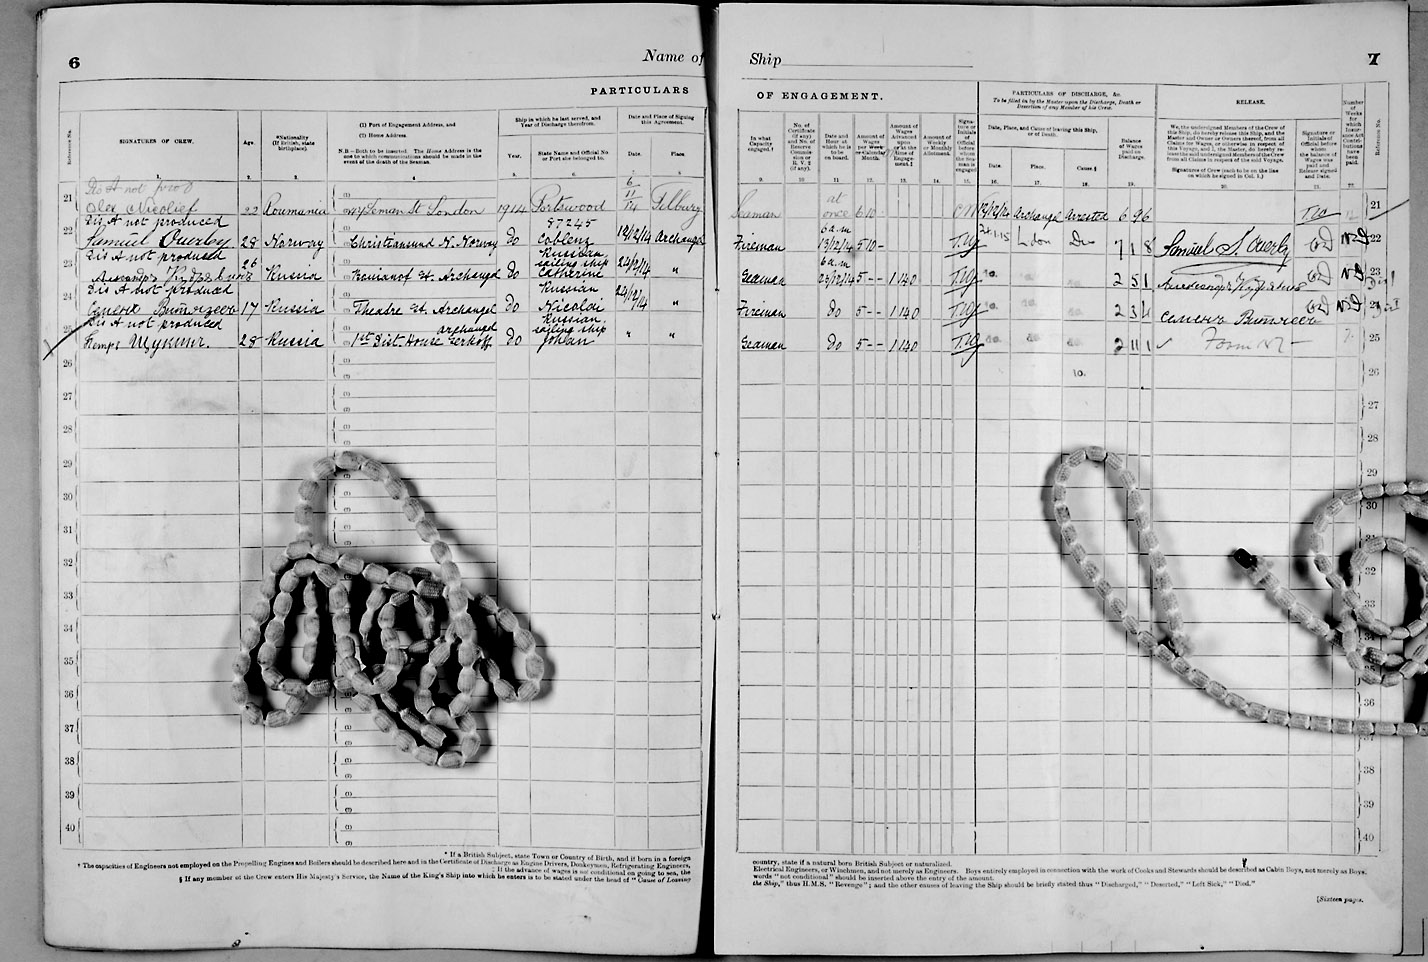 6
Name of
Ship
7
PARTICULARS
OF ENGAGEMENT.
PARTICULARS OF DISCHARGE, &c.
To be filled in by the Master upon the Discharge, Death or Desertion of any Member of his Crew.
RELEASE.
Reference No.
SIGNATURES OF CREW.
Age.
*Nationality (If British, state birthplace).
(1) Port of Engagement Address, and
(2) Home Address.
N.B.—Both to be inserted. The Home Address is the one to which communications should be made in the event of the death of the Seaman.
Ship in which he last served, and Year of Discharge therefrom.
Year.
State Name and Official No. or Port she belonged to.
Date and Place of Signing this Agreement.
Date.
Place.
In what Capacity engaged.†
No. of Certificate (if any) and No. of Reserve Commission or R.V.2 (if any).
Date and Hour at which he is to be on board.
Amount of Wages per Week or Calendar Month.
Amount of Wages Advanced upon or at the time of Engagement.‡
Amount of Weekly or Monthly Allotment.
Signature or Initials of Official before whom the Seaman is engaged
Date, Place, and Cause of leaving this Ship, or of Death.
Date.
Place.
Cause.§
Balance of Wages paid on Discharge.
We, the undersigned Members of the Crew of this Ship, do hereby release this Ship, and the Master and Owner or Owners thereof, from all Claims for Wages, or otherwise in respect of this Voyage, and I, the Master, do hereby release the said undersigned Members of the Crew from all Claims in respect of the said Voyage.
Signatures of Crew (each to be on the line on which he signed in Col. 1.)
Signature or Initials of Official before whom the balance of Wages was paid and Release signed and Date.
Number of Weeks for which Insurance Act Contributions have been paid.
Reference No.
21 Dis A not prod
Alex Nicolief 22 Roumania Leman St London 1914 Portswood 6/11/14 Tilbury Seaman at once 6 10 12/12/14 Archangel Arrested 6 9 6 21
22 Dis A not produced 87245
Samuel Overby 28 Norway Christiansund N. Norway do Coblenz 12/12/14 Archangel Fireman 6 a.m 13/12/14 5 10 – 24.1.15 Do 7 1 8 Samuel S. Overby 22
23 Dis A not produced 26 Russian sailing ship
Russia St. Archangel do Catherine 24/12/14 " Seaman 6 a.m 24/12/14 5 – – 1 14 0 do. 2 5 1 23
24 Dis A not produced Russian
17 Russia Theatre St. Archangel do Nicolai 24/12/14 " Fireman do 5 – – 1 14 0 do. 2 3 4 24
25 Dis A not produced Archangel Russian sailing ship
Щукин. 28 Russia 1st Dist. House do Johan " " Seaman do 5 – – 1 14 0 do. 2 11 1 25
26 10. 26
27 27
28 28
29 29
30 30
31 31
32 32
33 33
34 34
35 35
36 36
37 37
38 38
39 39
40 40
* If a British Subject, state Town or Country of Birth, and if born in a foreign country, state if a natural born British Subject or naturalized.
† The capacities of Engineers not employed on the Propelling Engines and Boilers should be described here and in the Certificate of Discharge as Engine Drivers, Donkeymen, Refrigerating Engineers, Electrical Engineers, or Winchmen, and not merely as Engineers. Boys entirely employed in connection with the work of Cooks and Stewards should be described as Cabin Boys, not merely as Boys.
‡ If the advance of wages is not conditional on going to sea, the words "not conditional" should be inserted above the entry of the amount.
§ If any member of the Crew enters His Majesty's Service, the Name of the King's Ship into which he enters is to be stated under the head of "Cause of Leaving the Ship," thus H.M.S. "Revenge"; and the other causes of leaving the Ship should be briefly stated thus "Discharged," "Deserted," "Left Sick," "Died."
[Sixteen pages.